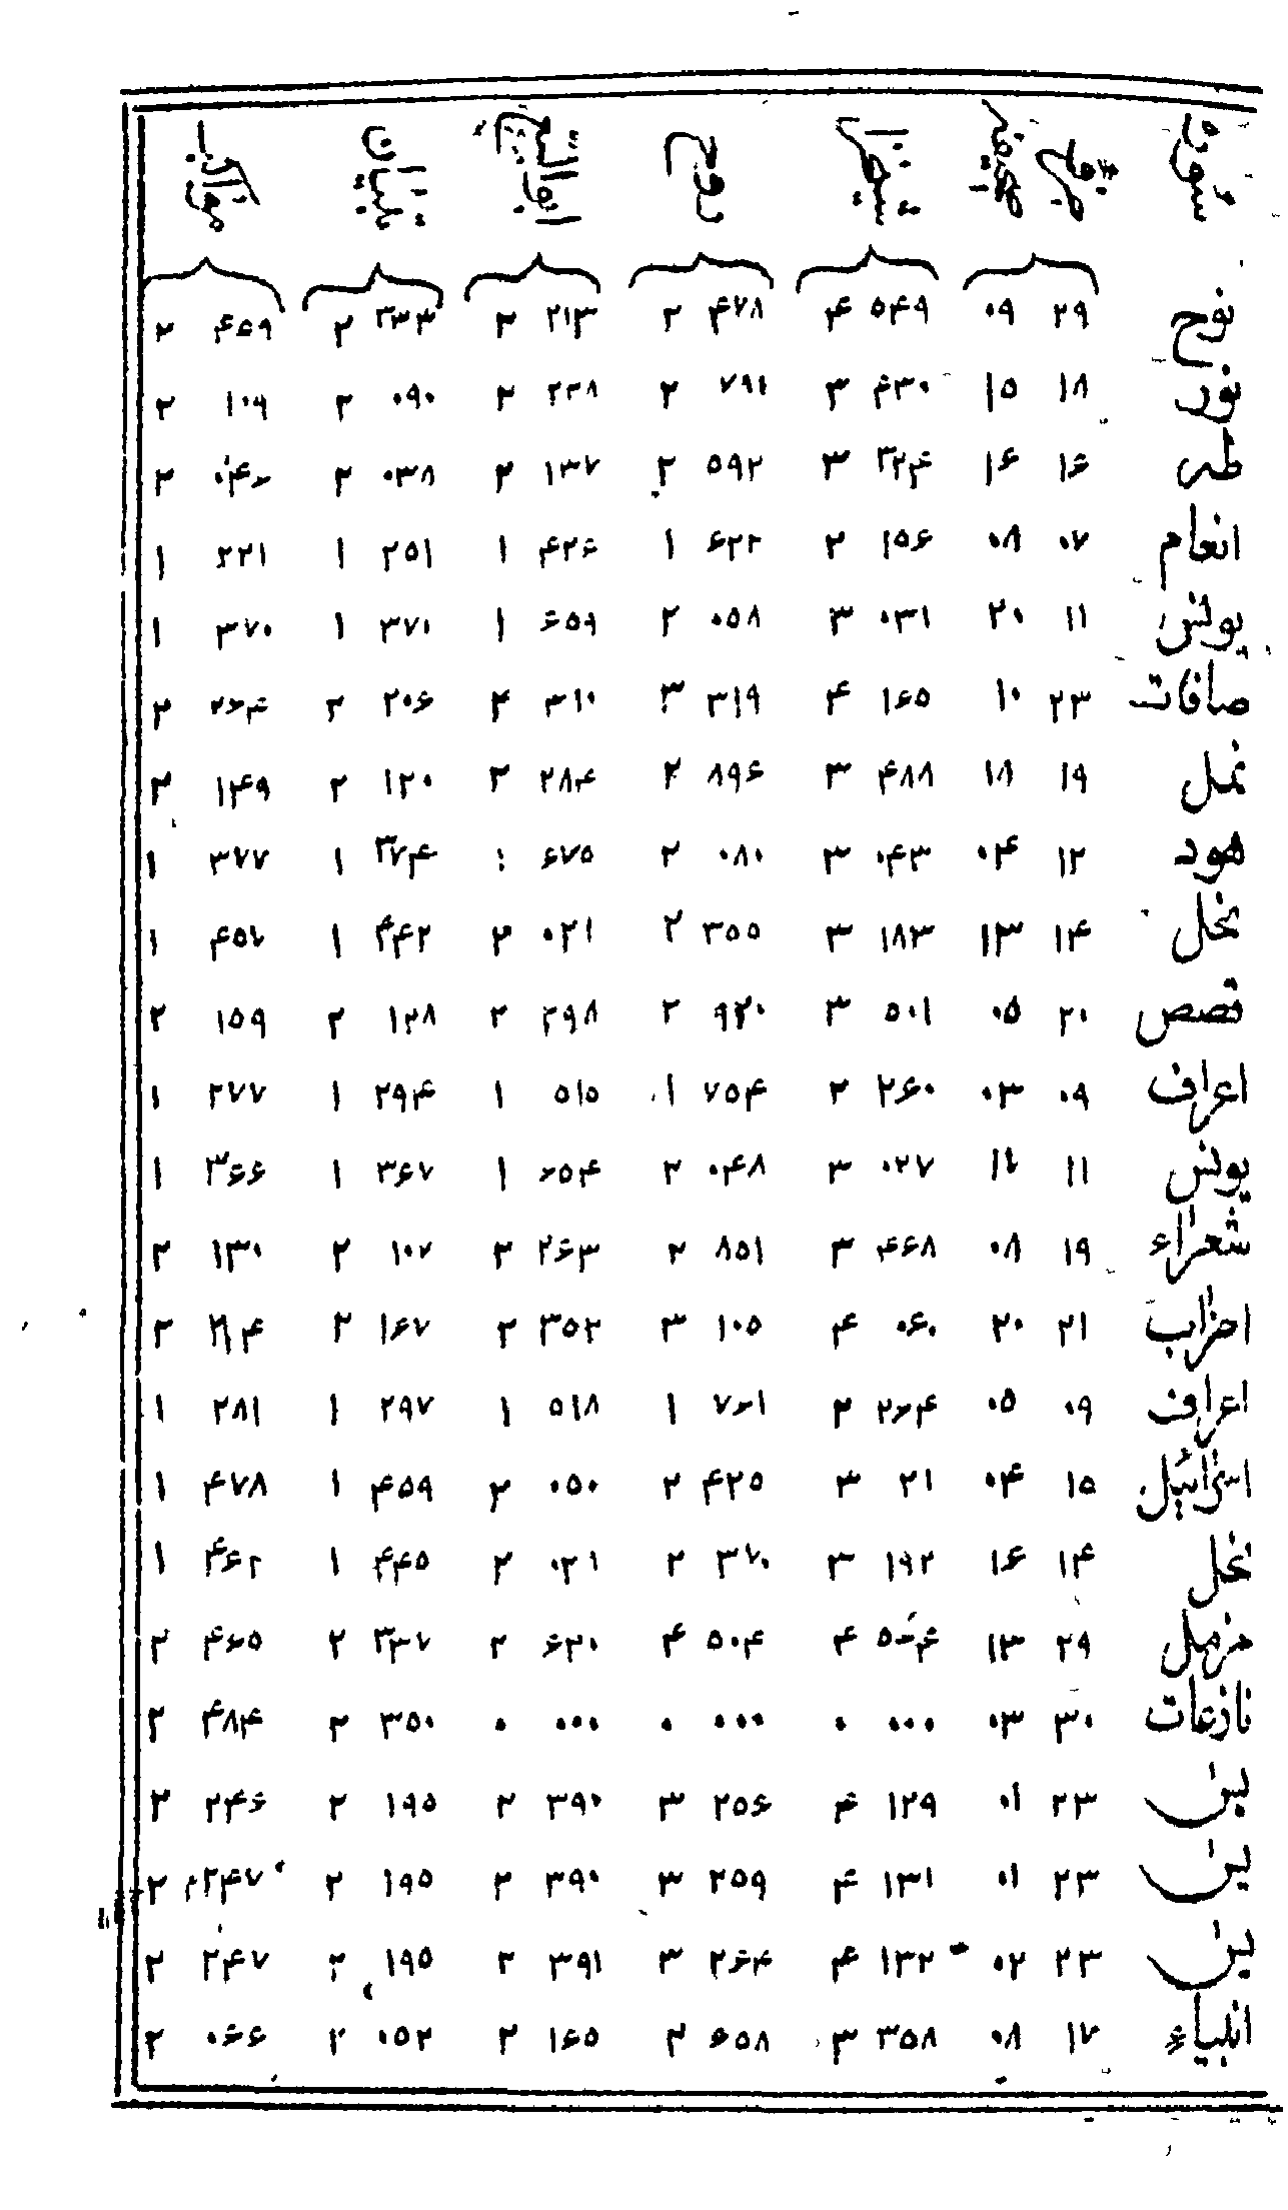 سوره جزء صفحه روح تبیان
نوح ۲۹ ۰۹ ۵۴۹ ۴ ۴۷۸ ۲ ۲۱۳ ۲ ۳۳۳ ۲ ۴۵۹ ۲
نور ۱۸ ۱۵ ۴۳۰ ۳ ۷۹۱ ۲ ۲۳۸ ۲ ۰۹۰ ۲ ۱۰۹ ۲
طه ۱۶ ۱۶ ۳۲۴ ۳ ۵۹۲ ۲ ۱۳۷ ۲ ۰۳۸ ۲ ۰۴۶ ۲
انعام ۰۷ ۰۸ ۱۵۶ ۲ ۶۲۲ ۱ ۴۲۶ ۱ ۲۵۱ ۱ ۲۲۱ ۱
یونس ۱۱ ۲۰ ۰۳۱ ۳ ۰۵۸ ۲ ۶۵۹ ۱ ۳۷۰ ۱ ۳۷۰ ۱
صافات ۲۳ ۱۰ ۱۶۵ ۴ ۳۱۹ ۳ ۳۱۰ ۲ ۲۰۶ ۲ ۲۶۴ ۲
نمل ۱۹ ۱۸ ۴۸۸ ۳ ۸۹۶ ۲ ۲۸۴ ۲ ۱۲۰ ۲ ۱۴۹ ۲
هود ۱۲ ۰۴ ۰۴۳ ۳ ۰۸۰ ۲ ۶۷۵ ۱ ۳۷۴ ۱ ۳۷۷ ۱
نحل ۱۴ ۱۳ ۱۸۳ ۳ ۳۵۵ ۲ ۰۲۱ ۲ ۴۴۲ ۱ ۴۵۷ ۱
قصص ۲۰ ۰۵ ۵۰۱ ۳ ۹۲۰ ۲ ۲۹۸ ۲ ۱۲۸ ۲ ۱۵۹ ۲
اعراف ۰۹ ۰۳ ۲۶۰ ۲ ۷۵۴ ۱ ۵۱۵ ۱ ۲۹۴ ۱ ۲۷۷ ۱
یونس ۱۱ ۰۲۷ ۳ ۰۴۸ ۲ ۶۵۴ ۱ ۳۶۷ ۱ ۳۶۶ ۱
شعراء ۱۹ ۰۸ ۴۶۸ ۳ ۸۵۱ ۲ ۲۶۳ ۲ ۱۰۷ ۲ ۱۳۰ ۲
احزاب ۲۱ ۲۰ ۰۶۰ ۴ ۱۰۵ ۳ ۳۵۲ ۲ ۱۶۷ ۲ ۲۱۴ ۲
اعراف ۰۹ ۰۵ ۲۶۴ ۲ ۷۶۱ ۱ ۵۱۸ ۱ ۲۹۷ ۱ ۲۸۱ ۱
اسرائیل ۱۵ ۰۴ ۲۱ ۳ ۴۲۵ ۲ ۰۵۰ ۲ ۴۵۹ ۱ ۴۷۸ ۱
نحل ۱۴ ۱۶ ۱۹۲ ۳ ۳۷۰ ۲ ۰۲۱ ۲ ۴۴۵ ۱ ۴۶۲ ۱
مزمل ۲۹ ۱۳ ۵۶۴ ۴ ۵۰۴ ۴ ۶۲۰ ۲ ۳۳۷ ۲ ۴۶۵ ۲
نازعات ۳۰ ۰۳ ۰۰۰ ۰ ۰۰۰ ۰ ۰۰۰ ۰ ۳۵۰ ۲ ۴۸۴ ۲
یس ۲۳ ۰۱ ۱۲۹ ۴ ۲۵۶ ۳ ۳۹۰ ۲ ۱۹۵ ۲ ۲۴۶ ۲
یس ۲۳ ۰۱ ۱۳۱ ۴ ۲۵۹ ۳ ۳۹۰ ۲ ۱۹۵ ۲ ۲۴۷ ۲
یس ۲۳ ۰۲ ۱۳۲ ۴ ۲۶۴ ۳ ۳۹۱ ۲ ۱۹۵ ۲ ۲۴۷ ۲
انبیاء ۱۷ ۰۸ ۳۵۸ ۳ ۶۵۸ ۲ ۱۶۵ ۲ ۰۵۲ ۲ ۰۶۶ ۲